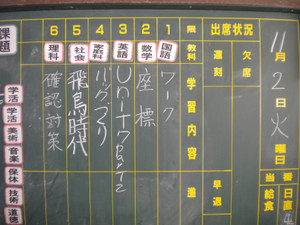 11月2日火曜日
日直
当番
給食
出席状況
欠席
遅刻
早退
限 教科 学習内容 進
1 国語 ワーク
2 数学 座標
3 英語
4 家庭科 バックづくり
5 社会 飛鳥時代
6 理科 確認対策
課題
学活
学活
美術
音楽
保体
技術
道徳